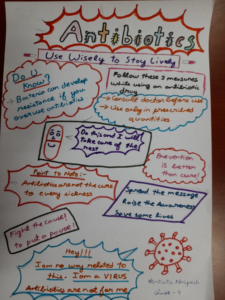 Antibiotics
Use Wisely to Stay Lively
Do U
Know?
→ Bacteria can develop
resistance if you
overuse antibiotics
Follow these 2 measures
while using an antibiotic
drug
→ Consult doctor before use
→ Use only in prescribed
quantities
Do this and I will
take care of the
rest
Point to Note:-
Antibiotics are not the cure
to every sickness
Prevention is
better than
cure!
Fight the cause!
to put a pause!
Spread the message
Raise the Awareness
Save some lives
Hey!!!
I am no way related to
this. I am a VIRUS
Antibiotics are not for me